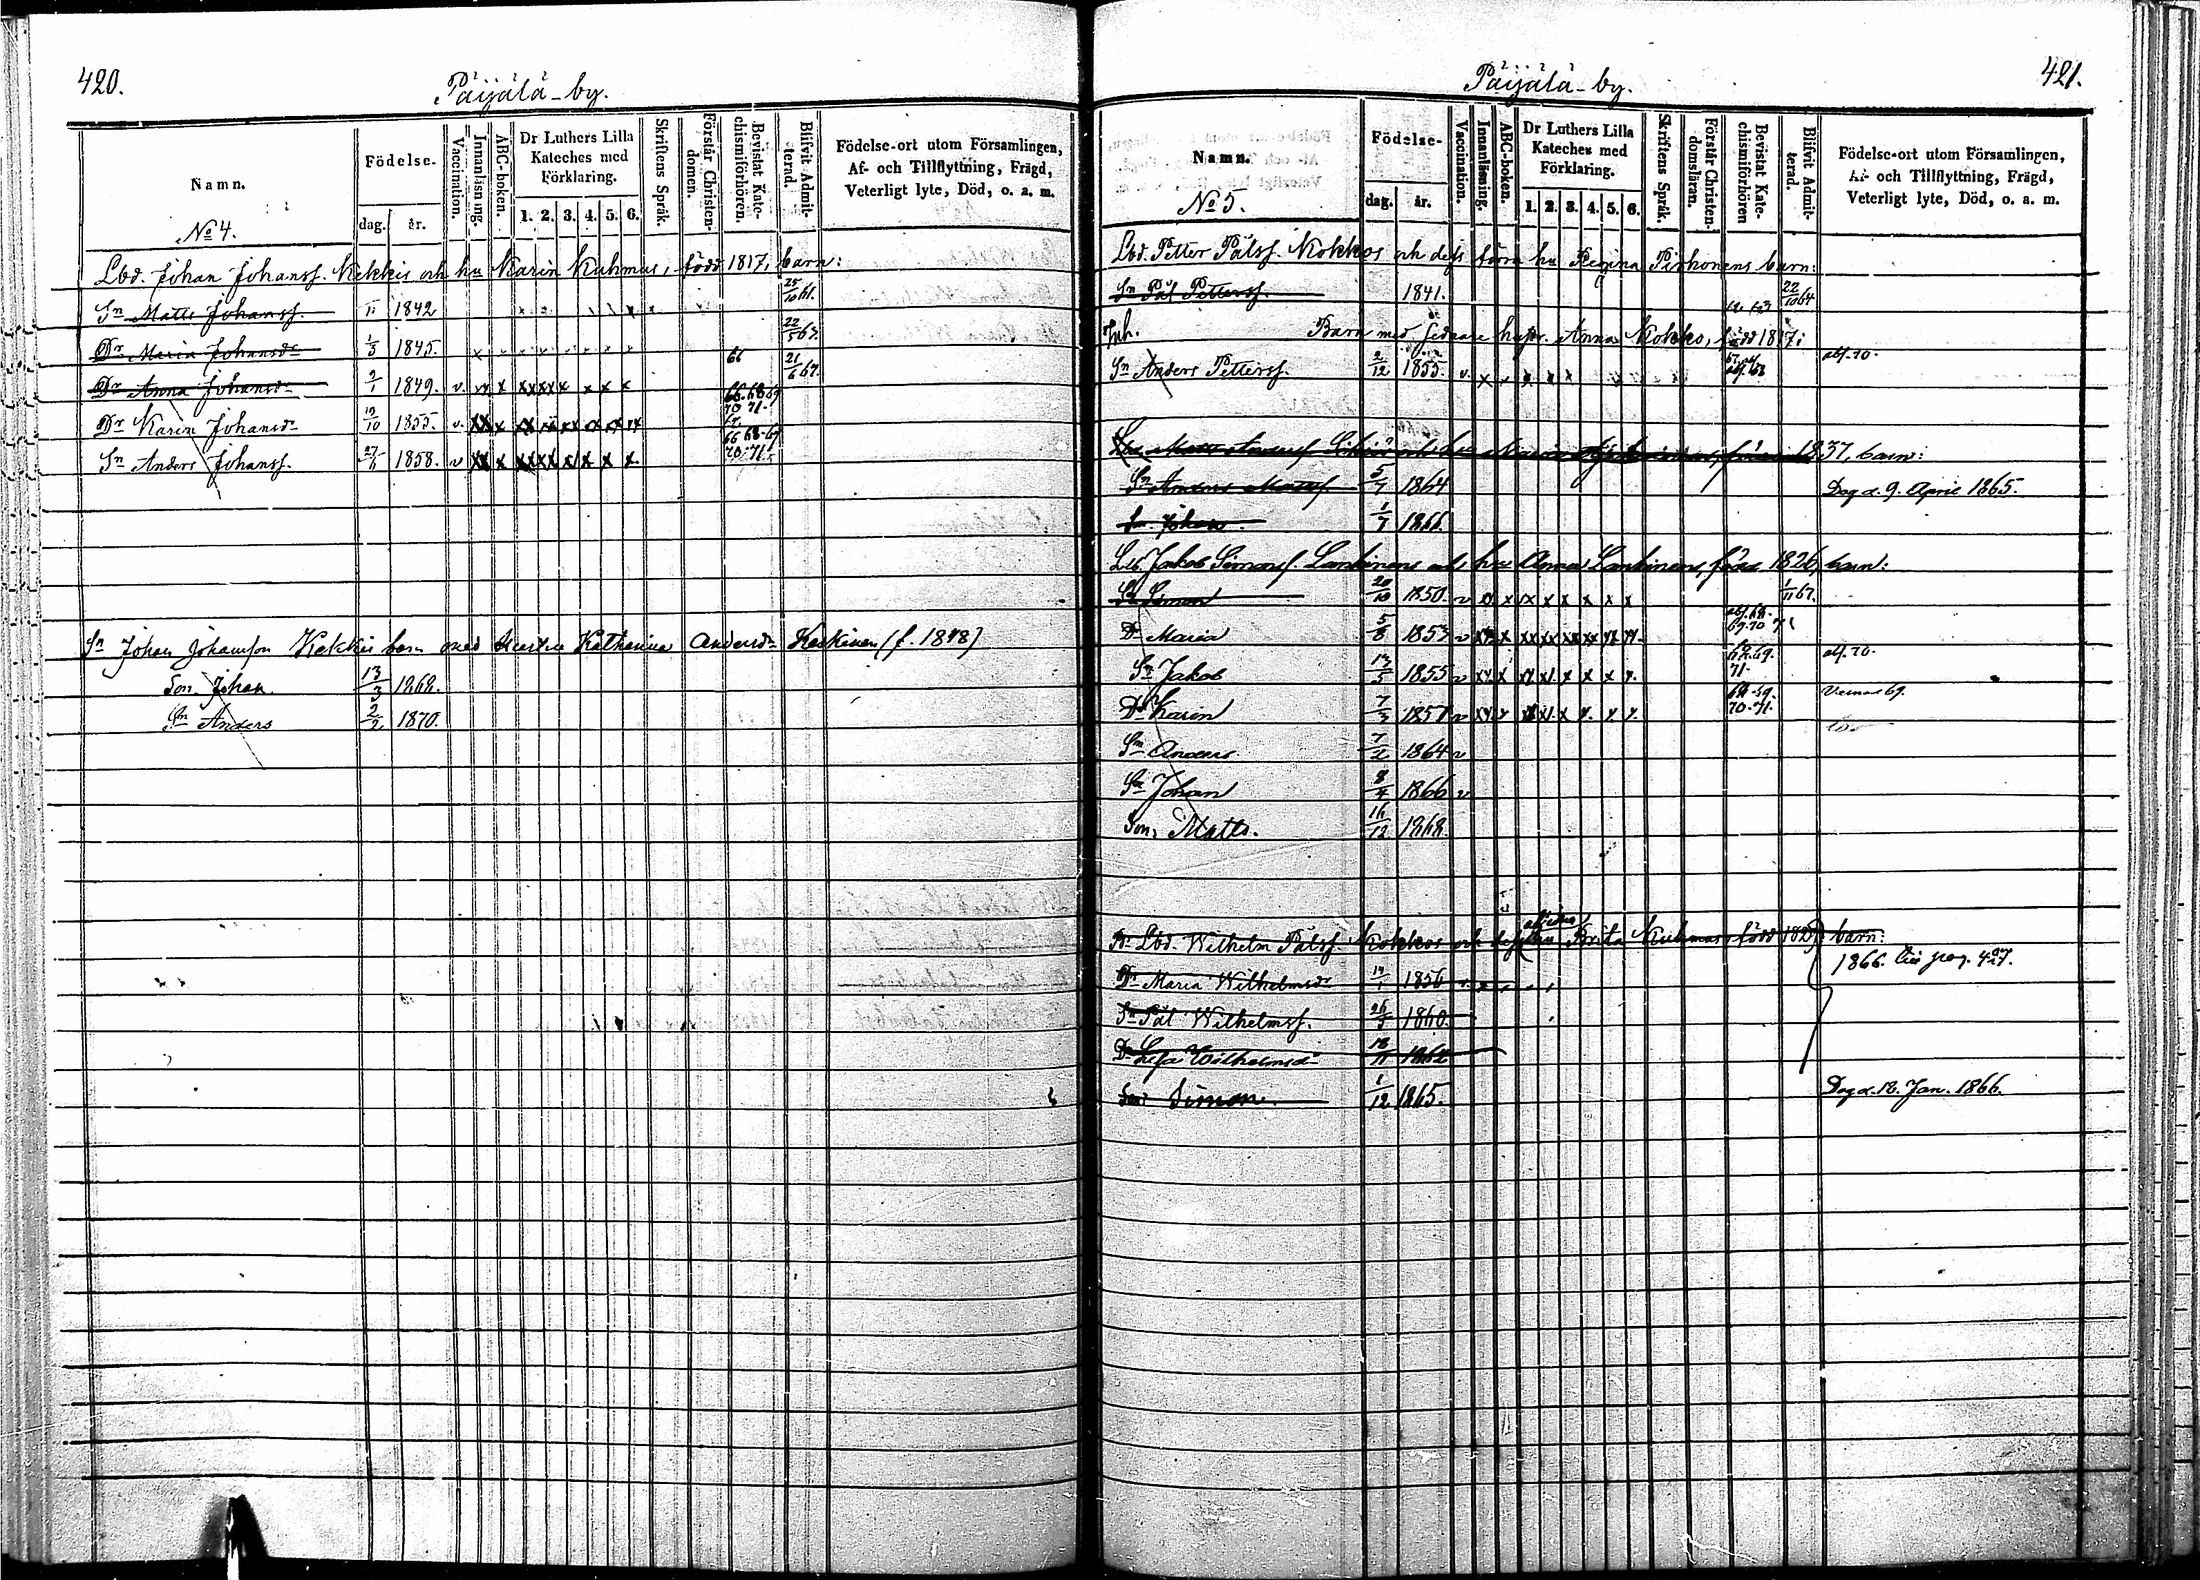 420.
Päijälä - by.
Namn.
Födelse-
dag.
år.
Vaccination.
Innanläsning.
ABC-boken.
Dr Luthers Lilla Kateches med Förklaring.
1. 2. 3. 4. 5. 6.
Skriftens Språk.
Förstår Christen-domen.
Bevistat Kate-chismiförhören.
Blifvit Admit-terad.
Födelse-ort utom Församlingen, Af- och Tillflyttning, Frägd, Veterligt lyte, Död, o. a. m.
No 4.
Lbd. Johan Johanss. Kekkis och hu Karin Kuhmus, född 1817, barn:
Sn Matts Johanss. 1842 25/10 61.
Dr Maria Johansdr 1/3 1845. 22/5 63.
Dr Anna Johansdr 2/1 1849. v. xx x xx xx x x x x 66 21/6 67.
Dr Karin Johansdr 1855. v. xx x 66. 68 69 70 71.
Sn Anders Johanss. 1858. v xx x 66 68 69 70. 71.
Sn Johan Johansson Kekkis barn med hustru Katharina Andersdr Keskinen (f. 1848)
Son. Johan. 13/3 1868.
Sn Anders 2/2 1870.
421.
Päijälä - by.
Namn.
Födelse-
dag.
år.
Vaccination.
Innanläsning.
ABC-boken.
Dr Luthers Lilla Kateches med Förklaring.
1. 2. 3. 4. 5. 6.
Skriftens Språk.
Förstår Christen-domsläran.
Bevistat Kate-chismiförhören
Blifvit Admit-terad.
Födelse-ort utom Församlingen, Af- och Tillflyttning, Frägd, Veterligt lyte, Död, o. a. m.
No 5.
Lbd. Petter Pålss. Kokkos och dess förra hu Regina Pirhonens barn:
Sn Pål Petterss. 1841. 62 63 22/10 64
Inh. Barn med sednare hustr. Anna Kokko, född 1817:
Sn Anders Petterss. 2/12 1855. v. x abf. 70.
1837, barn:
Sn Anders Mattss. 1864 Dog d. 9. April 1865.
Sn Johan 1/7 1866.
Lb. Jakob Simonss. Lankinens och hu Anna Lankinens, född 1826, barn:
Sn Simon 20/10 1850. v x x x x x x x 1/11 67.
Dr Maria 5/8 1853 v 69. 70 71
Sn Jakob 1855 v 69. 71. abf. 70.
Dr Karin 7/3 v 70. 71.
Sn Anders 7/2 1864 v
Sn Johan 8/4 1866 v
Son, Matts. 16/12 1868.
Lbd. Wilhelm Pålss. Kokkos och dess hu Brita Kuhmus, född barn:
1866. pag. 427.
Dr Maria Wilhelmsdr 1856
Sn Pål Wilhelmss. 1860.
Dr Lisa Wilhelmsdr 1862
Son Simon. 1/12 1865. Dog d. 18. Jan. 1866.